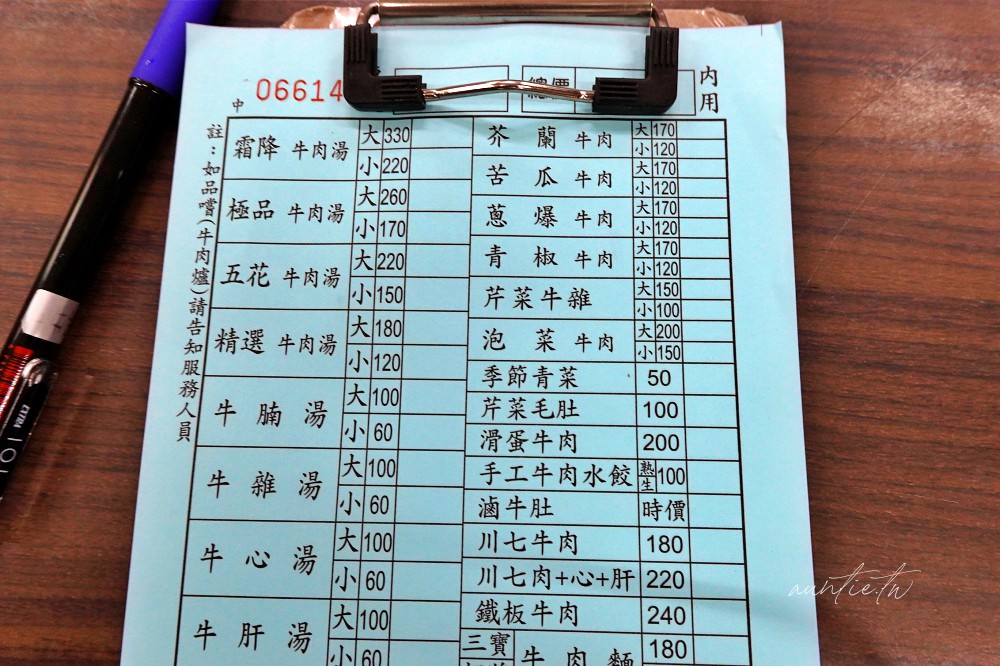 中 06614
總價
內用
註：如品嚐(牛肉爐)請告知服務人員
霜降 牛肉湯 大 330
小 220
極品 牛肉湯 大 260
小 170
五花 牛肉湯 大 220
小 150
精選 牛肉湯 大 180
小 120
牛腩湯 大 100
小 60
牛雜湯 大 100
小 60
牛心湯 大 100
小 60
牛肝湯 大 100
小 60
芥蘭 牛肉 大 170
小 120
苦瓜 牛肉 大 170
小 120
蔥爆 牛肉 大 170
小 120
青椒 牛肉 大 170
小 120
芹菜牛雜 大 150
小 100
泡菜 牛肉 大 200
小 150
季節青菜 50
芹菜毛肚 100
滑蛋牛肉 200
手工牛肉水餃 熟 生 100
滷牛肚 時價
川七牛肉 180
川七肉+心+肝 220
鐵板牛肉 240
三寶 牛肉麵 180
EXTRA
auntie.tw